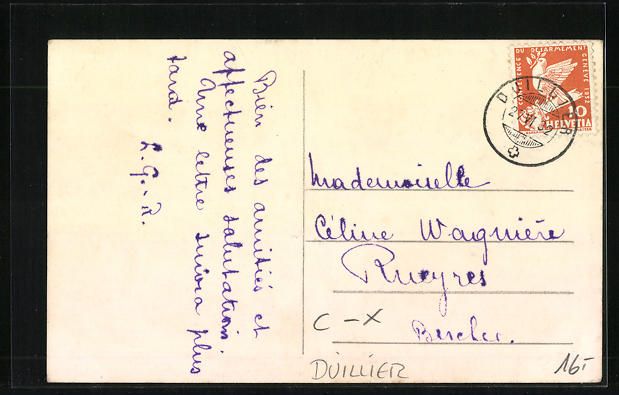 Bien des amitiés et
affectueuses salutations.
Une lettre suivra plus
tard.
L. G. - R.
CONFERENCE DU DESARMEMENT GENEVE 1932
10
HELVETIA
DUILLIER
Mademoiselle
Céline Wagnière
Rueyres
Bercher.
C - X
DUILLIER
16.-